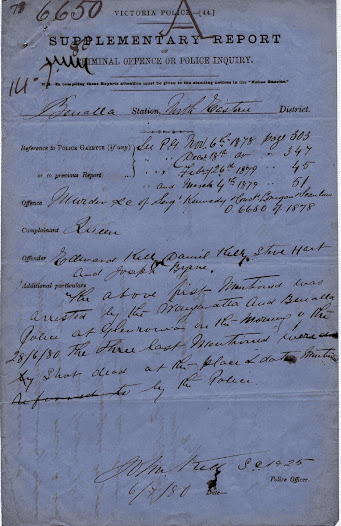 6650
VICTORIA POLICE—[44]
A
SUPPLEMENTARY REPORT
CRIMINAL OFFENCE OR POLICE INQUIRY.
N.B. In compiling these Reports attention must be given to the standing notices in the "Police Gazette."
Benalla Station, North Eastern District.
Reference to POLICE GAZETTE (if any) See P.G. Nov. 6th 1878 page 303
" Decr 18th " 347
or to previous Report " Feby 26th 1879 " 45
" and March 4th 1879 " 51
Offence Murder &c of Sergt Kennedy & Const Lonigan & Scanlan
O 6650 of 1878
Complainant Queen
Offender Edward Kelly, Daniel Kelly, Steve Hart
and Joseph Byrne.
Additional particulars
The above first mentioned was
arrested by the Wangaratta and Benalla
Police at Glenrowan on the morning of the
28/6/80 the three last mentioned
by shot dead at the place & date mentioned
by the Police.
S.C. 1925
Police Officer.
6/7/80 Date